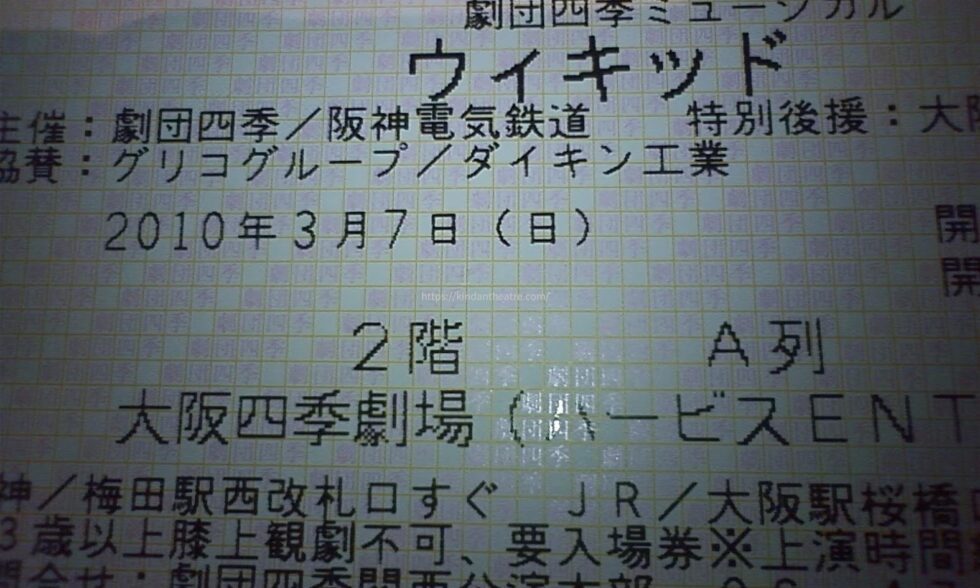 劇団四季ミュージカル
ウィキッド
主催：劇団四季／阪神電気鉄道　特別後援：大
協賛：グリコグループ／ダイキン工業
2010年3月7日（日）
開
開
https://kindantheatre.com/
2階　A列
大阪四季劇場（ハービスENT
神／梅田駅西改札口すぐ　JR／大阪駅桜橋
3歳以上膝上観劇不可、要入場券※上演時間
問合せ：劇団四季関西公演本部